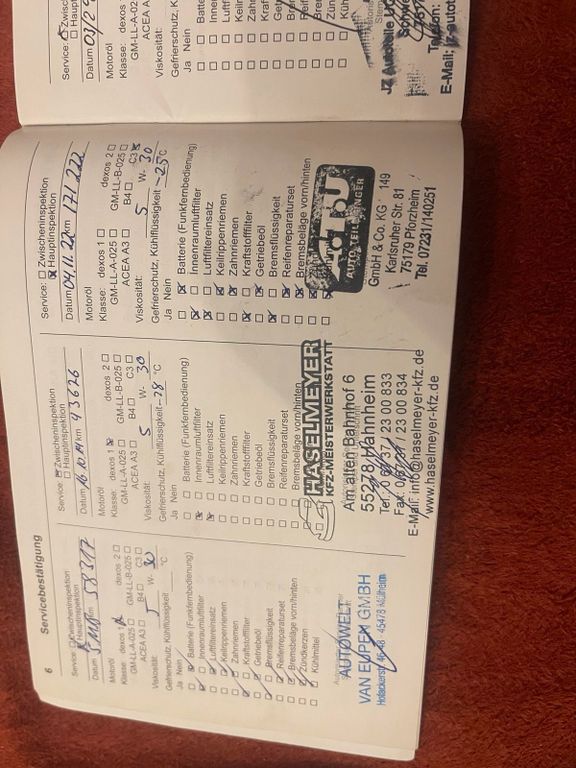 6 Servicebestätigung
Service: Zwischeninspektion
Hauptinspektion
Datum km 58317
Motoröl
Klasse: dexos 1 dexos 2
GM-LL-A-025 GM-LL-B-025
ACEA A3 B4 C3
Viskosität: 5 W- 30
Gefrierschutz, Kühlflüssigkeit °C
Ja Nein
Batterie (Funkfernbedienung)
Innenraumluftfilter
Luftfiltereinsatz
Keilrippenriemen
Zahnriemen
Kraftstofffilter
Getriebeöl
Bremsflüssigkeit
Reifenreparaturset
Bremsbeläge vorn/hinten
Zündkerzen
Kühlmittel
AUTOWELT
VAN EUPEN GMBH
45478 Mülheim
Service: Zwischeninspektion
Hauptinspektion
Datum 16.10.14 km 43626
Motoröl
Klasse: dexos 1 dexos 2
GM-LL-A-025 GM-LL-B-025
ACEA A3 B4 C3
Viskosität: 5 W- 30
Gefrierschutz, Kühlflüssigkeit -28 °C
Ja Nein
Batterie (Funkfernbedienung)
Innenraumluftfilter
Luftfiltereinsatz
Keilrippenriemen
Zahnriemen
Kraftstofffilter
Getriebeöl
Bremsflüssigkeit
Reifenreparaturset
Bremsbeläge vorn/hinten
HASELMEYER
KFZ-MEISTERWERKSTATT
Am alten Bahnhof 6
55278 Hannheim
Tel.: 0 67 37 / 23 00 833
Fax: 0 67 37 / 23 00 834
E-Mail: info@haselmeyer-kfz.de
www.haselmeyer-kfz.de
Service: Zwischeninspektion
Hauptinspektion
Datum 04.11.22 km 171 222
Motoröl
Klasse: dexos 1 dexos 2
GM-LL-A-025 GM-LL-B-025
ACEA A3 B4 C3
Viskosität: 5 W- 30
Gefrierschutz, Kühlflüssigkeit -25 °C
Ja Nein
Batterie (Funkfernbedienung)
Innenraumluftfilter
Luftfiltereinsatz
Keilrippenriemen
Zahnriemen
Kraftstofffilter
Getriebeöl
Bremsflüssigkeit
Reifenreparaturset
Bremsbeläge vorn/hinten
A.T.U
AUTO-TEILE-UNGER
GmbH & Co. KG 149
Karlsruher Str. 81
75179 Pforzheim
Tel. 07231/140251
Service: Zwisc
Haupt
Datum 03/2
Motoröl
Klasse: dexos
GM-LL-A-02
ACEA A
Viskosität:
Gefrierschutz, K
Ja Nein
Batte
Inne
Luftf
Keil
Zah
Kraf
Get
Bre
Rei
Bre
Zün
Küh
JZ Autoteile
Telefon:
E-Mail: